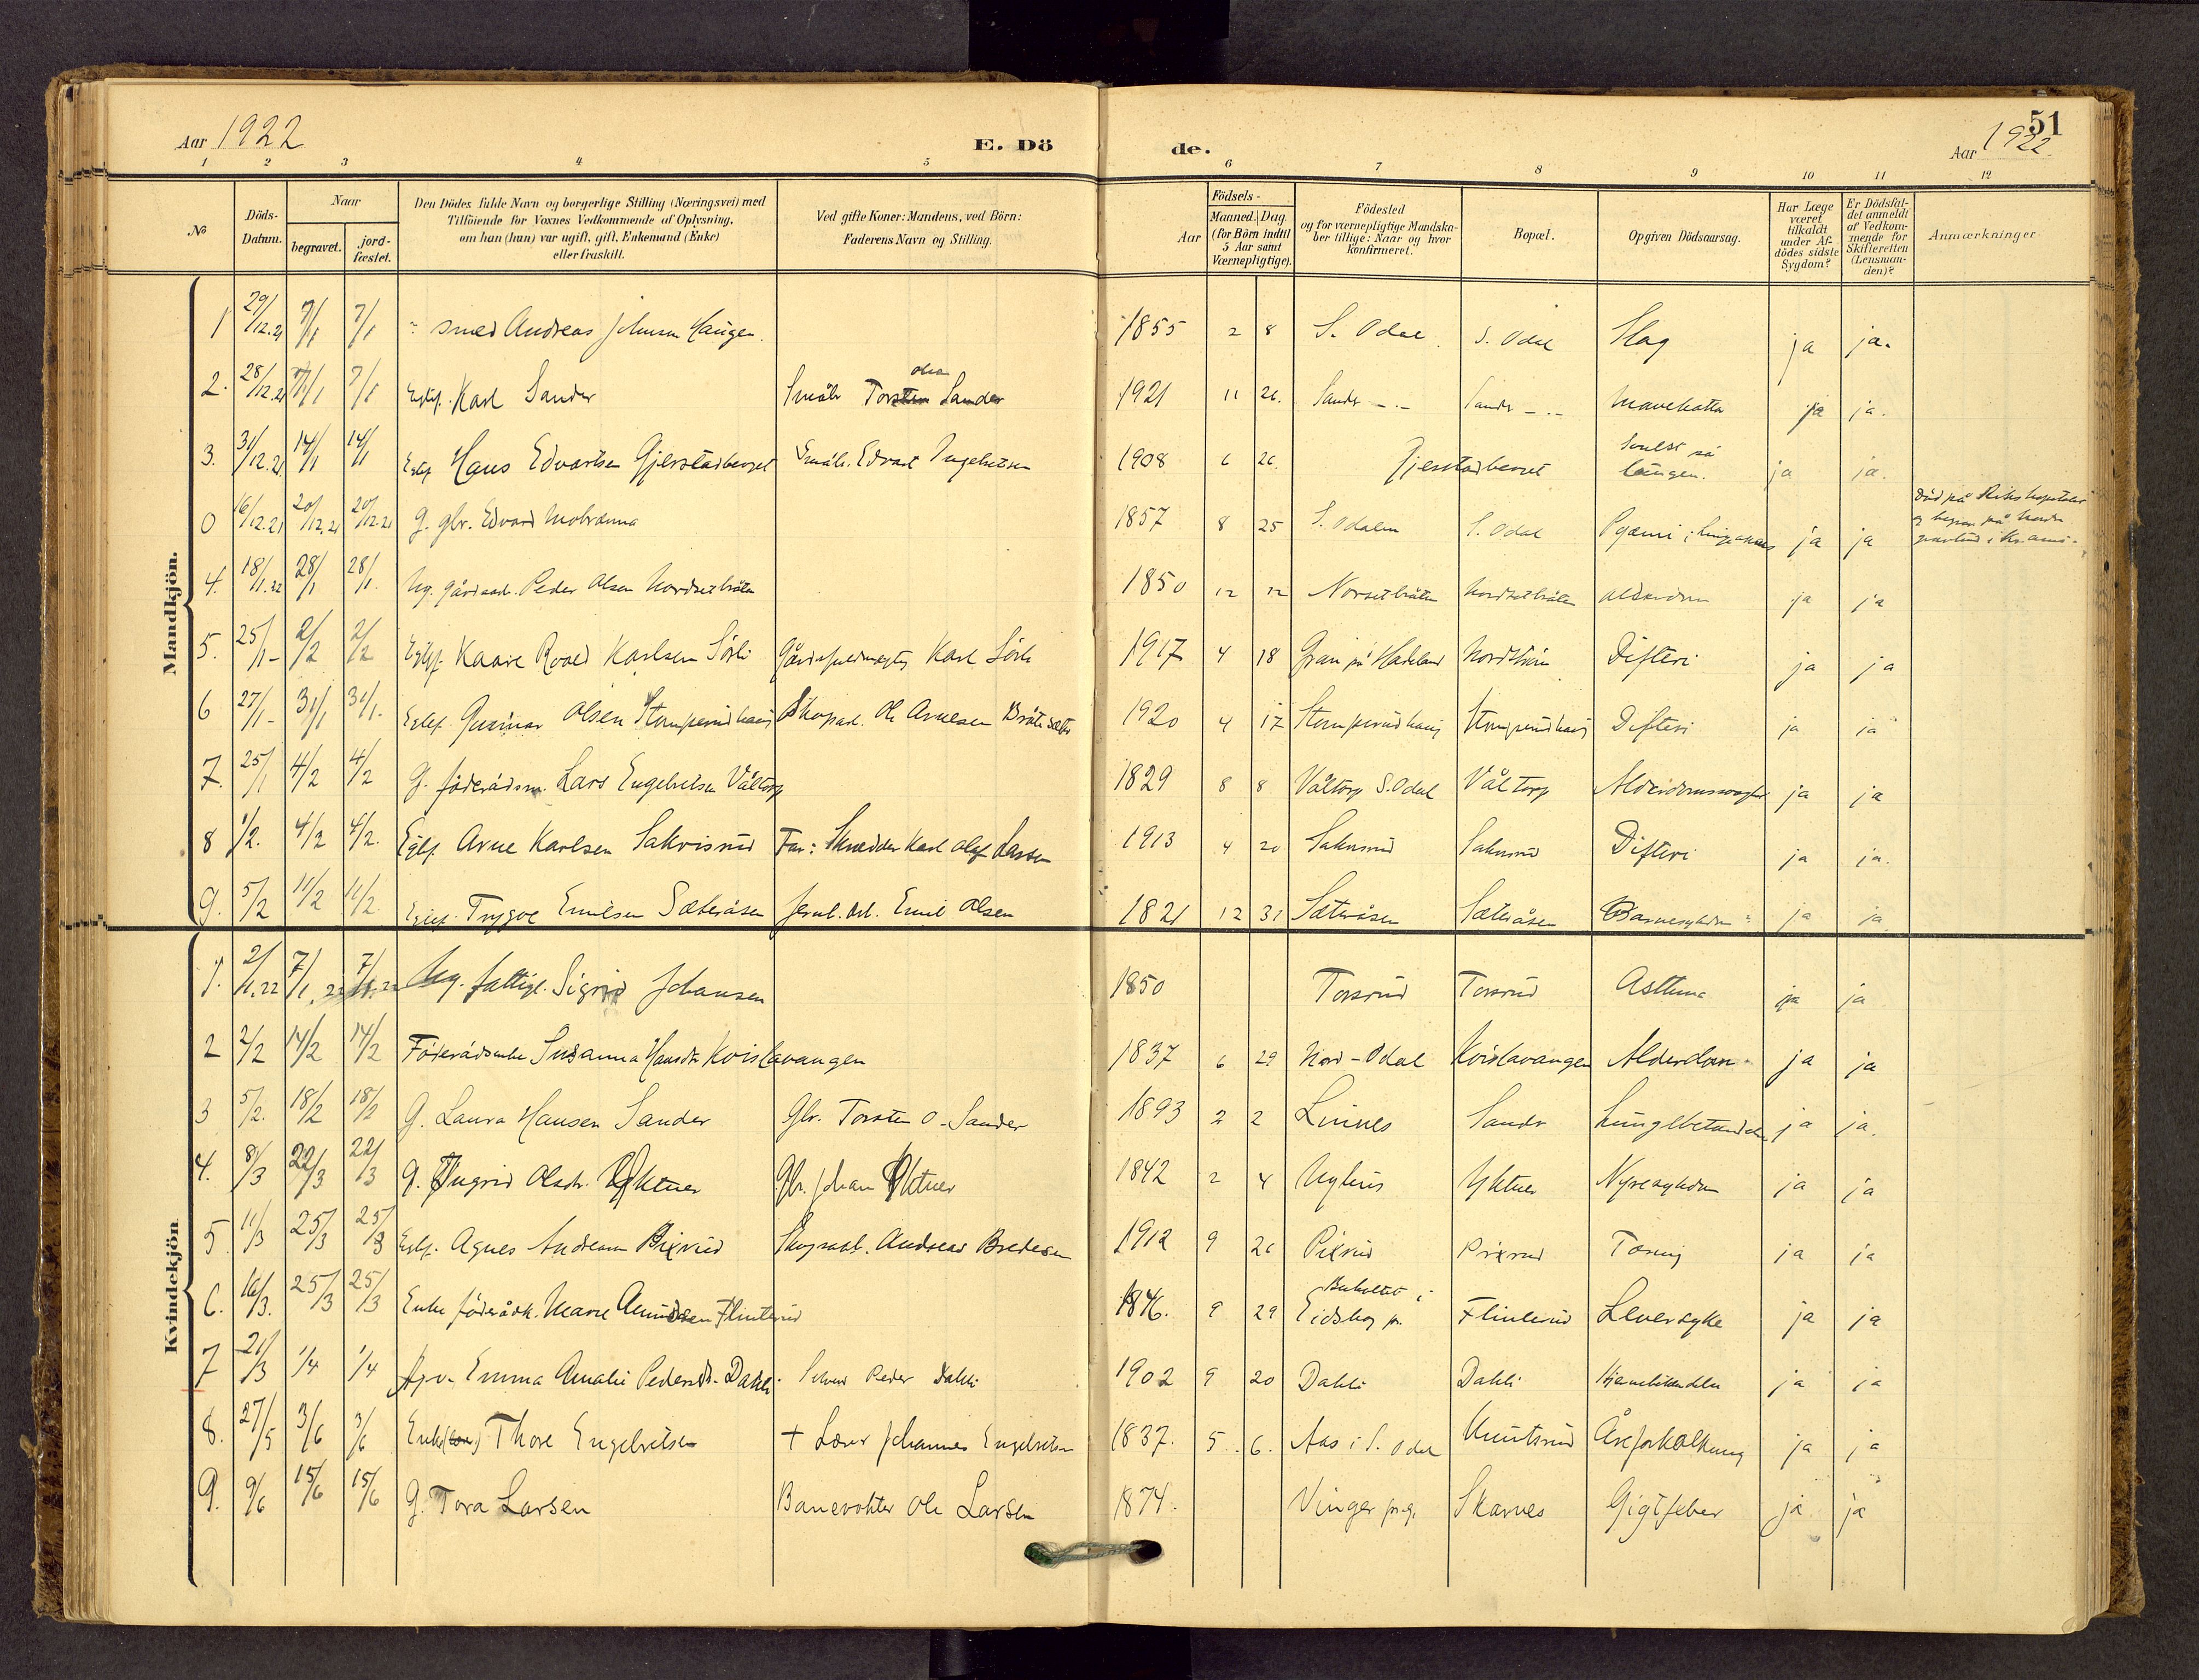 51
Aar 1922 E. Dö de. Aar 1922.
1 2 3 4 5 6 7 8 9 10 11 12
No
Döds-Datum.
Naar
begravet.
jord-fæstet.
Den Dödes fulde Navn og borgerlige Stilling (Næringsvei) med
Tilföiende for Voxnes Vedkommende af Oplysning,
om han (hun) var ugift, gift, Enkemand (Enke)
eller fraskilt.
Ved gifte Koner: Mandens, ved Börn:
Faderens Navn og Stilling.
Födsels-
Aar
Maaned. Dag.
(for Börn indtil
5 Aar samt
Værnepligtige).
Födested
og for værnepligtige Mandska-
ber tillige: Naar og hvor
konfirmeret.
Bopæl.
Opgiven Dödsaarsag.
Har Læge
været
tilkaldt
under Af-
dödes sidste
Sygdom?
Er Dödsfal-
det anmeldt
af Vedkom-
mende for
Skifteretten
(Lensman-
den)?
Anmærkninger
Mandkjön.
1 29/12.21 7/1 7/1 smed Andreas Johnsen Haugen. 1855 2 8 S. Odal S. Odal Slag ja ja.
2. 28/12.21 7/1 7/1 Egtef. Karl Sander Småbr Torsten Olsen Sander 1921 11 26. Sander -.- Sander -.- Mavekatar ja ja.
3. 31/12.21 14/1 14/1 Egtef Hans Edvartsen Gjerstadberget Småbr. Edvart Engebretsen 1908 6 26. Gjerstadberget Svulst på lungen. ja ja.
0 16/12.21 20/12.21 20/12.21 G. gbr. Edvard Mobrænna 1857 8 25 S. Odalen S. Odal Pyæmi i ja ja Död på Rikshospitalet og begrav. på Nordre gravlund i Kr.ania.
4. 18/1.22 28/1 28/1. Ug. gårdsarb. Peder Olsen Nordsetbråten 1850 12 12 Norsetbråten Nordsetbråten Alderdom ja ja
5. 25/1- 2/2 2/2 Egtef. Kaare Roald Karlsen Sörli Gårdsfuldmægtig Karl Sörli 1917 4 18 Gran på Hadeland Nordstrøm Difteri ja ja
6 27/1- 31/1 31/1. Egtef. Gunnar Olsen Stomperudhaug Skogsarb. Ole Arnesen Bråtesæter 1920 4 17 Stomperudhaug Stomperudhaug Difteri ja ja
7. 25/1 4/2 4/2 G. föderådsm. Lars Engebretsen Våltorp 1829 8 8 Våltorp S. Odal Våltorp Alderdomssvaghed ja ja
8 1/2. 4/2 4/2. Egtef. Arne Karlsen Sakrisrud Far: Skredder Karl Olaf Larsen 1913 4 20 Sakrisrud Sakrisrud Difteri ja ja.
9. 5/2 11/2 11/2. Egtef. Trygve Emilsen Sæteråsen Jernb. Arb. Emil Olsen 1821 12 31 Sæteråsen Sæteråsen Barnesygdom ja ja.
Kvindekjön
1. 2/1.22 7/1.22 7/1.22 Ug. fattigl. Sigrid Johansen 1850 Torsrud Torsrud Asthma ja ja
2 2/2 14/2 14/2 Föderådsenke Susanna Hansdtr Kvislavangen 1837 6 29 Nord-Odal Kvislavangen Alderdom ja ja
3 5/2. 18/2 18/2 G. Laura Hansen Sander Gbr. Torsten O. Sander 1893 2 2 Linnes Sander Lungebetændelse ja ja.
4. 8/3 22/3 22/3 G. Ingrid Olsdtr. Ugktner Gbr. Johan Uktner 1842 2 4 Uglund Yktner Nyresygdom ja ja
5. 11/3 25/3 25/3 Egtef. Agnes Andreassen Pixrud Skogsarb. Andreas Bredesen 1912 9 26 Pixrud Pixrud Tæring ja ja
6. 16/3. 25/3 25/3 Enke föderådk. Marie Amundsen Flinterud 1846. 9 29 Buholtet i Eidskog p. Flinterud Leversyke ja ja
7 21/3 1/4 1/4 Emma Amalie Pedersdtr. Dahli. Selveier Peder Dahli 1902 9 20 Dahli Dahli ja ja
8. 27/5 3/6 3/6 Enke Thore Engebretsen + Lærer Johannes Engebretsen 1837. 5. 6. Aas i S. Odal Knutsrud Åreforkalkning ja ja
9. 9/6 15/6 15/6 G. Tora Larsen Banevokter Ole Larsen 1874. Vinger prg. Skarnes Gigtfeber ja ja